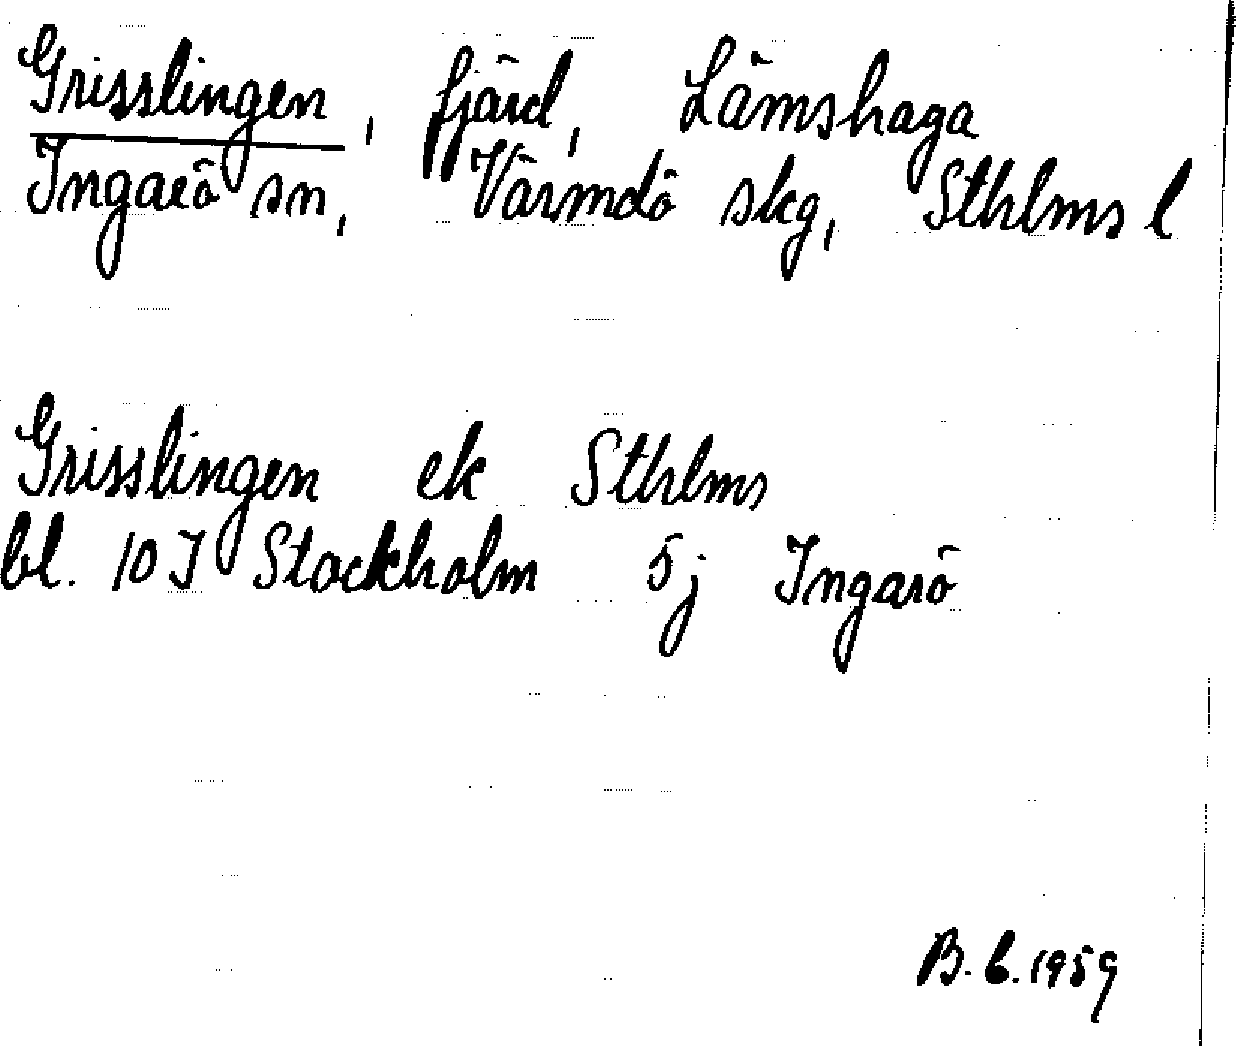 Grisslingen, fjärd, Lämshaga
Ingarö sn, Värmdö skg, Sthlms l
Grisslingen ek Sthlms
bl. 10 I Stockholm 5j Ingarö
B. b. 1959